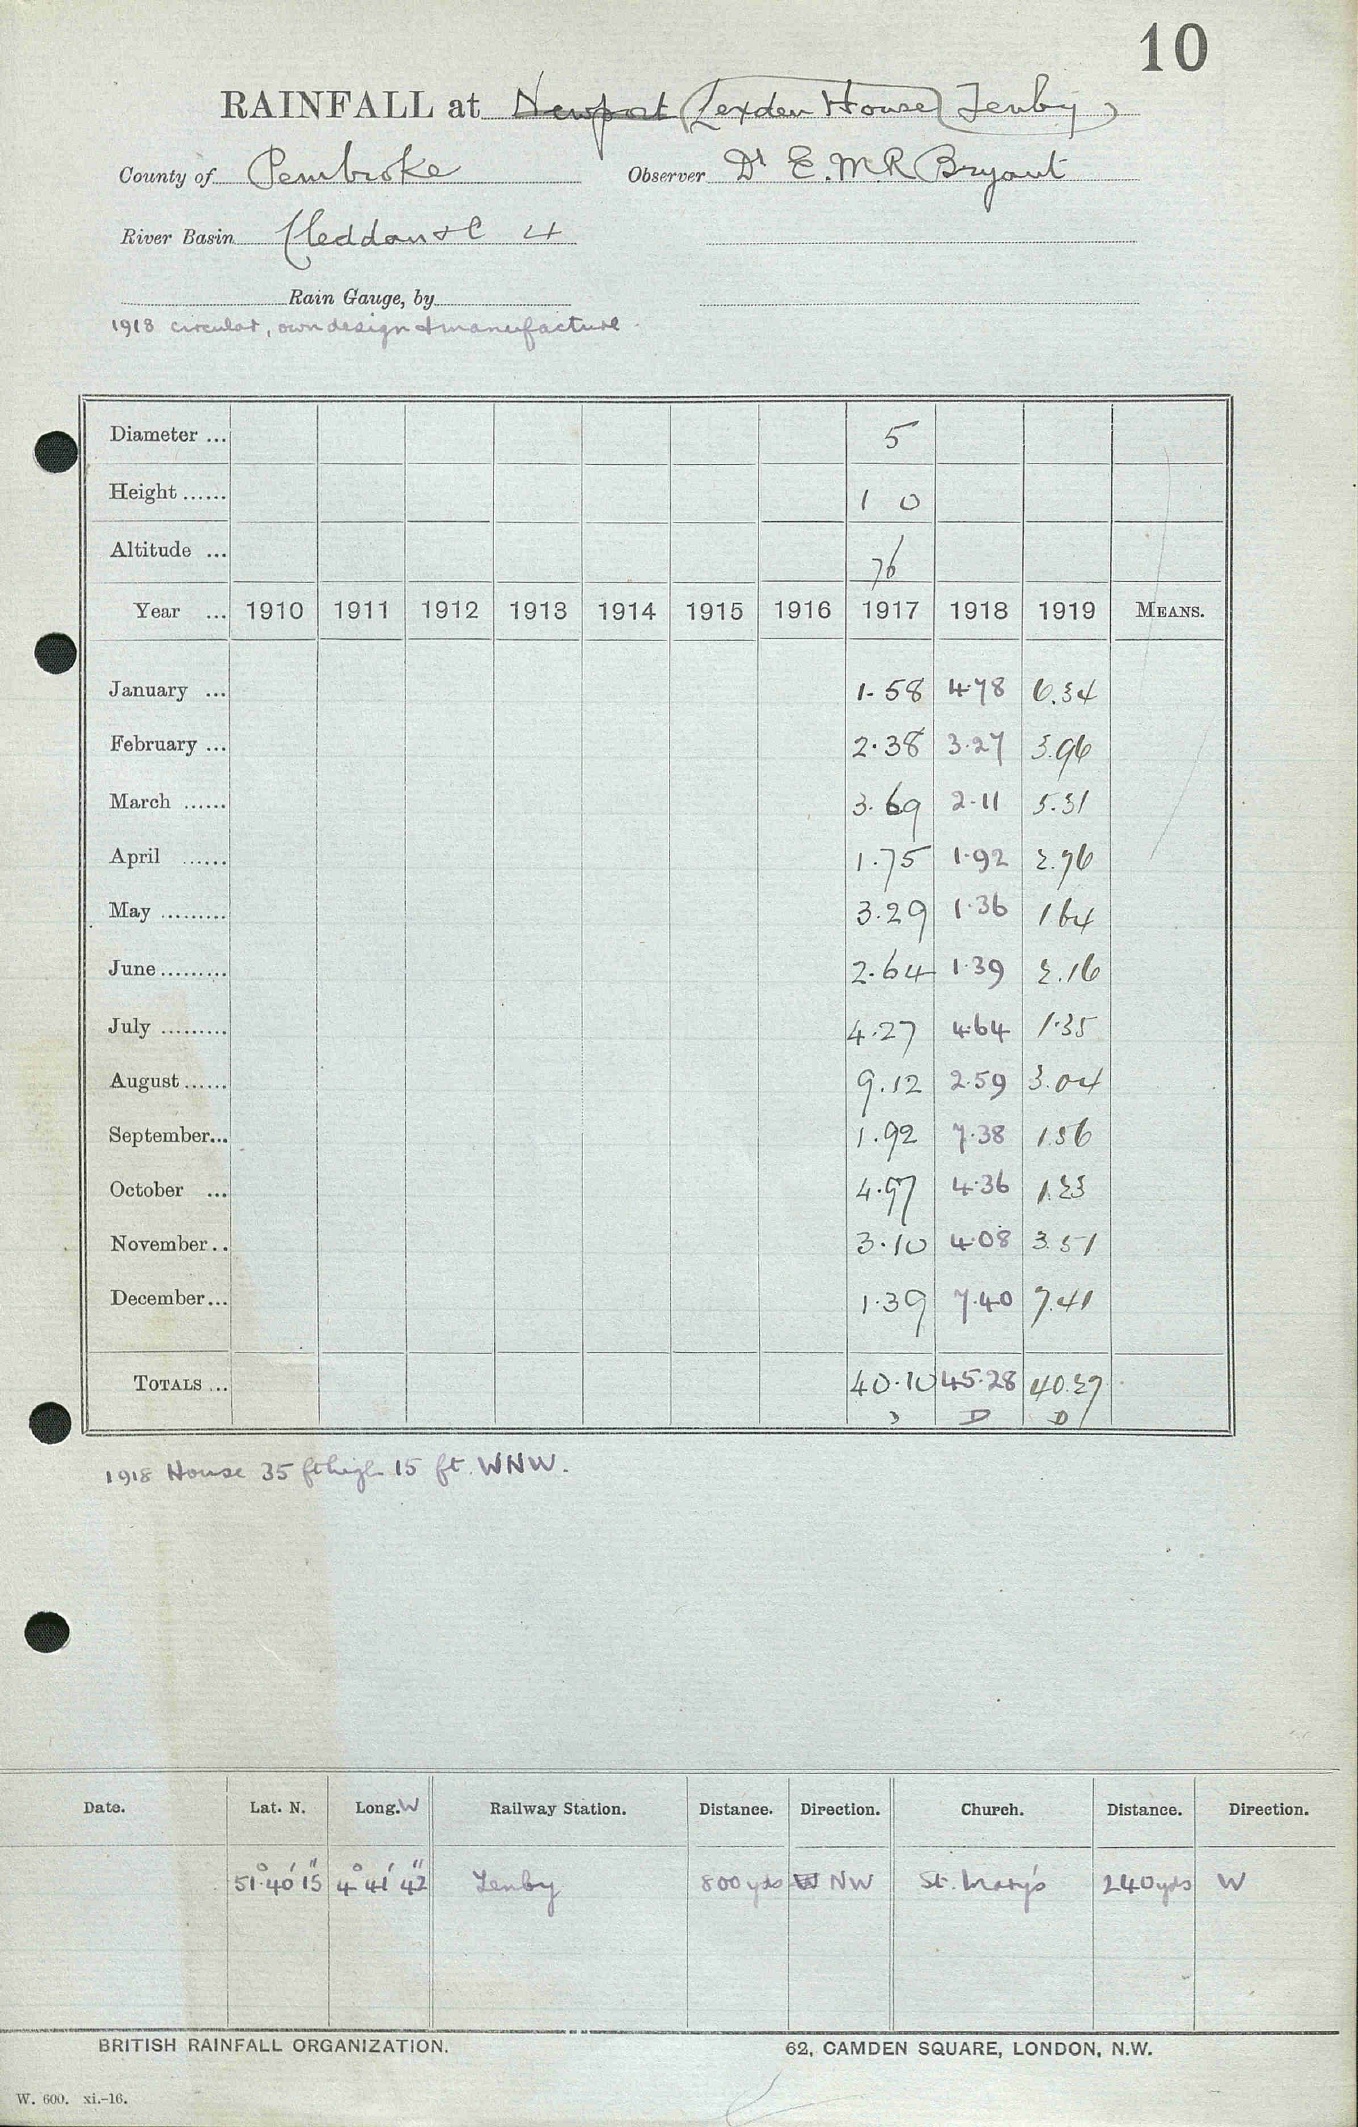 10
RAINFALL at Newport (Lexden House) Tenby
County of Pembroke Observer Dr E.M.R Bryant
River Basin Cleddau &c 4
Rain Gauge, by
1918 circular, own design & manufacture
Diameter ... 5
Height ...... 1 0
Altitude ... 76
Year ... 1910 1911 1912 1913 1914 1915 1916 1917 1918 1919 MEANS.
January ... 1.58 4.78 6.34
February ... 2.38 3.27 3.96
March ...... 3.69 2.11 5.31
April ...... 1.75 1.92 2.76
May ......... 3.29 1.36 1 64
June ......... 2.64 1.39 2.16
July ......... 4.27 4.64 1.35
August ...... 9.12 2.59 3.04
September... 1.92 7.38 1.56
October ... 4.97 4.36 1.23
November.. 3.10 4.08 3.51
December... 1.39 7.40 7.41
TOTALS ... 40.10 45.28 40.27
D D
1918 House 35 ft high 15 ft. WNW.
Date. Lat. N. Long. W Railway Station. Distance. Direction. Church. Distance. Direction.
51° 40' 15" 4° 41' 42" Tenby 800 yds NW St. Mary's 240 yds W
BRITISH RAINFALL ORGANIZATION. 62, CAMDEN SQUARE, LONDON, N.W.
W. 600. xi.-16.